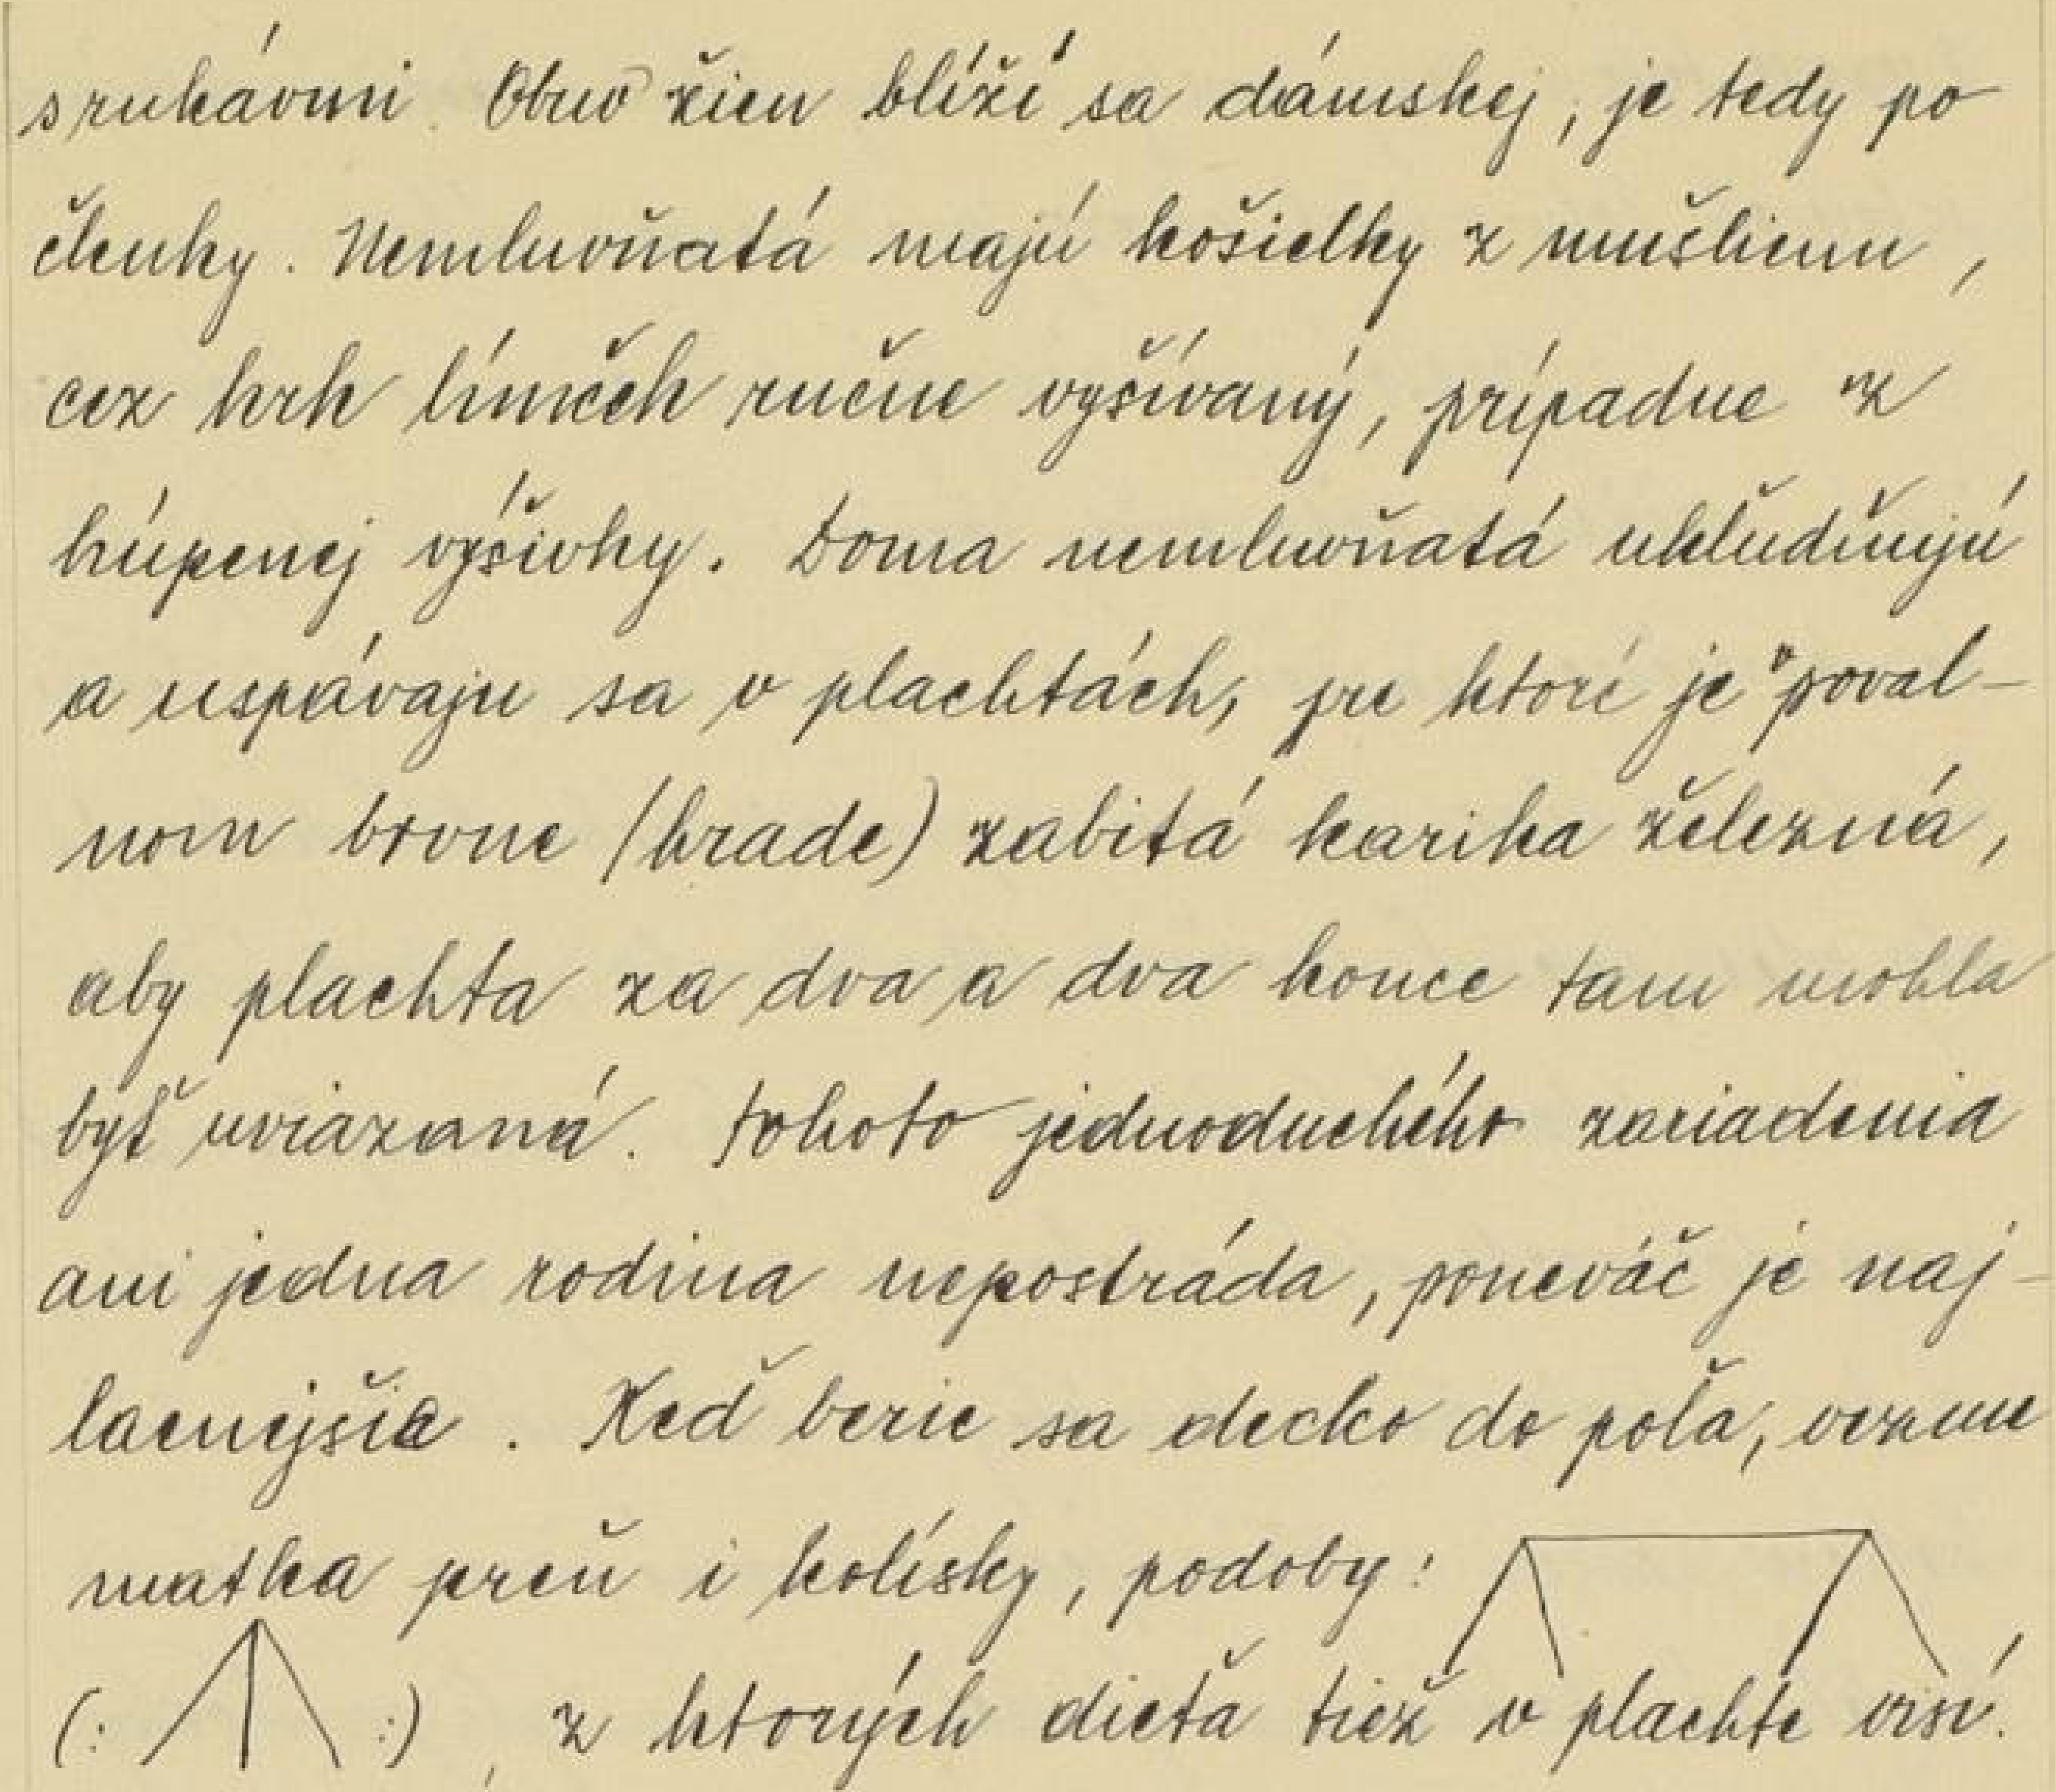 s rukávmi. Obuv žien blíží sa dámskej, je tedy po
členky. Nemluvňatá majú košielky z mušlienu,
cez krk límček ručne vyšívaný, prípadne z
kúpenej výšivky. Doma nemluvňatá ukľudňujú
a uspávaju sa v plachtách, pre ktoré je v poval-
nom brvne (hrade) zabitá karika železná,
aby plachta za dva a dva konce tam mohla
byť uviazaná. Tohoto jednoduchého zariadenia
ani jedna rodina nepostráda, poneváč je naj-
lacnejšie. Keď berie sa decko do poľa, vezme
matka preň i kolísky, podoby:
(: :), z ktorých dieťa tiež v plachte visí.